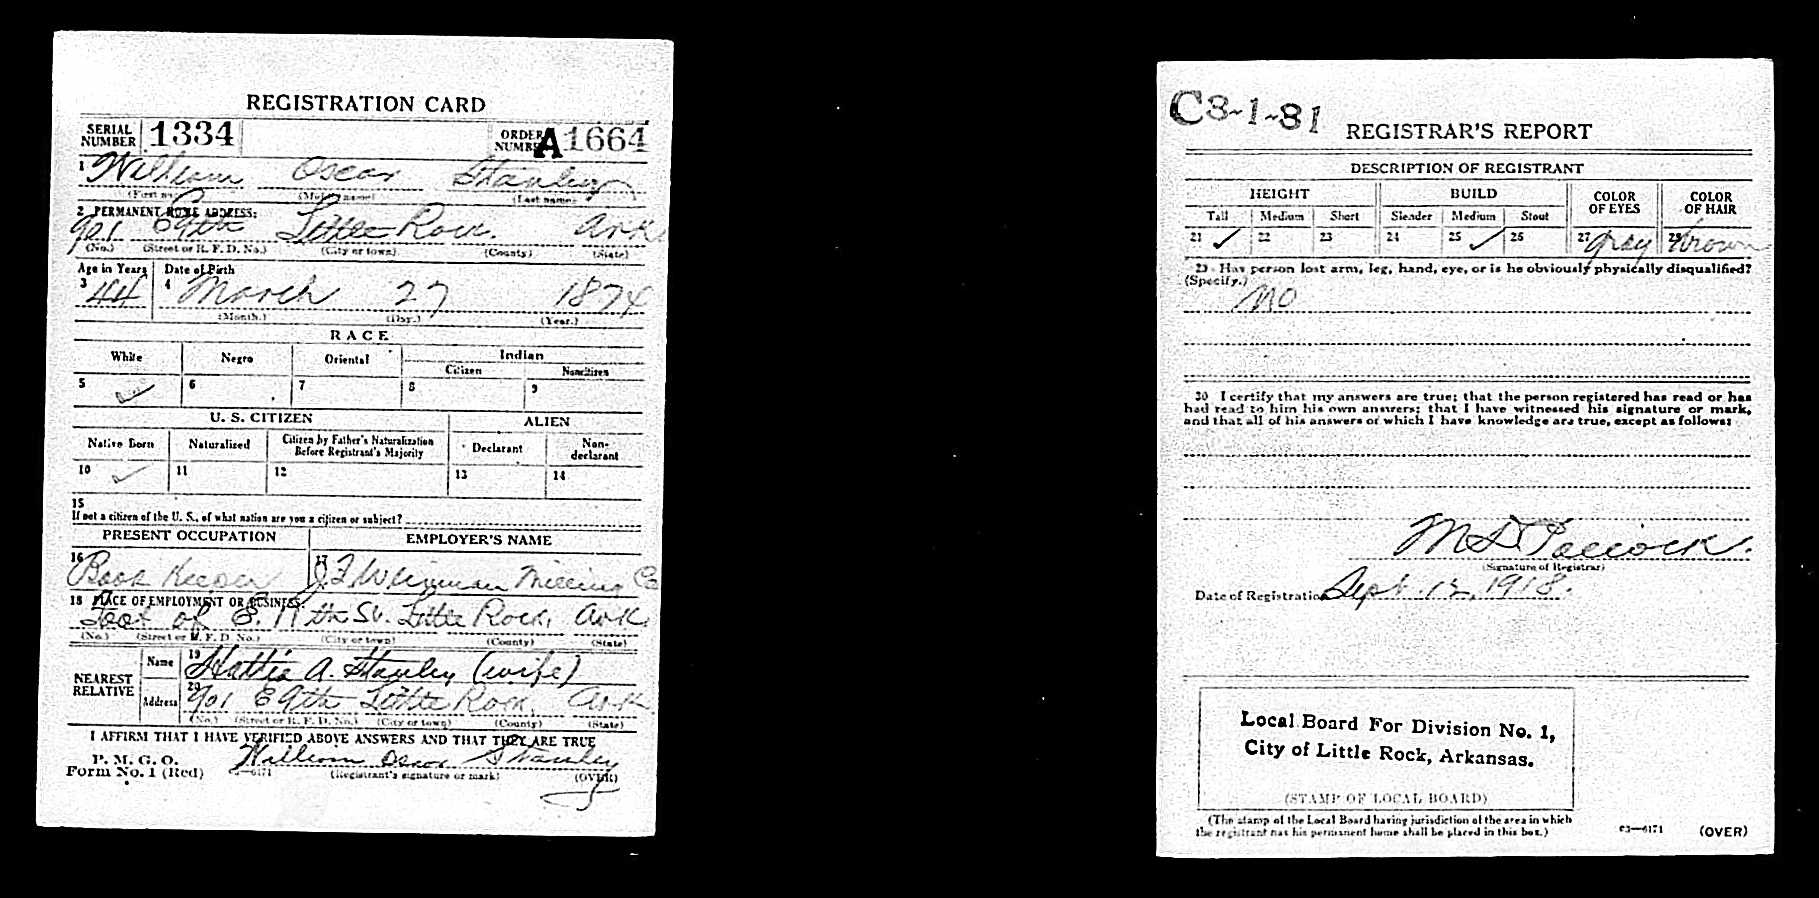 REGISTRATION CARD
SERIAL NUMBER 1334 ORDER NUMBER A1664
1 William Oscar Stanley
(First name) (Middle name) (Last name)
2 PERMANENT HOME ADDRESS:
901 E 9th Little Rock. Ark
(No.) (Street or R. F. D. No.) (City or town) (County) (State)
Age in Years Date of Birth
3 44 4 March 27 1874
(Month.) (Day.) (Year.)
RACE
White Negro Oriental Indian
Citizen Noncitizen
5 ✓ 6 7 8 9
U. S. CITIZEN ALIEN
Native Born Naturalized Citizen by Father's Naturalization Before Registrant's Majority Declarant Non-declarant
10 ✓ 11 12 13 14
15
If not a citizen of the U. S., of what nation are you a citizen or subject?
PRESENT OCCUPATION EMPLOYER'S NAME
16 Book Keeper 17 J F Weinman Milling Co
18 PLACE OF EMPLOYMENT OR BUSINESS:
Foot of E. 17th St. Little Rock, Ark.
(No.) (Street or R. F. D. No.) (City or town) (County) (State)
NEAREST RELATIVE Name 19 Hattie A. Stanley (wife)
Address 20 901 E 9th Little Rock, Ark
(No.) (Street or R. F. D. No.) (City or town) (County) (State)
I AFFIRM THAT I HAVE VERIFIED ABOVE ANSWERS AND THAT THEY ARE TRUE
P. M. G. O.
Form No. 1 (Red) William Oscar Stanley
(Registrant's signature or mark) (OVER)
C3-1-31
REGISTRAR'S REPORT
DESCRIPTION OF REGISTRANT
HEIGHT BUILD COLOR OF EYES COLOR OF HAIR
Tall Medium Short Slender Medium Stout
21 ✓ 22 23 24 25 ✓ 26 27 Gray 28 brown
29 Has person lost arm, leg, hand, eye, or is he obviously physically disqualified?
(Specify.) no
30 I certify that my answers are true; that the person registered has read or has
had read to him his own answers; that I have witnessed his signature or mark,
and that all of his answers of which I have knowledge are true, except as follows:
M D Peacock.
(Signature of Registrar)
Date of Registration Sept. 12, 1918.
Local Board For Division No. 1,
City of Little Rock, Arkansas.
(STAMP OF LOCAL BOARD)
(The stamp of the Local Board having jurisdiction of the area in which
the registrant has his permanent home shall be placed in this box.)
03—6171 (OVER)